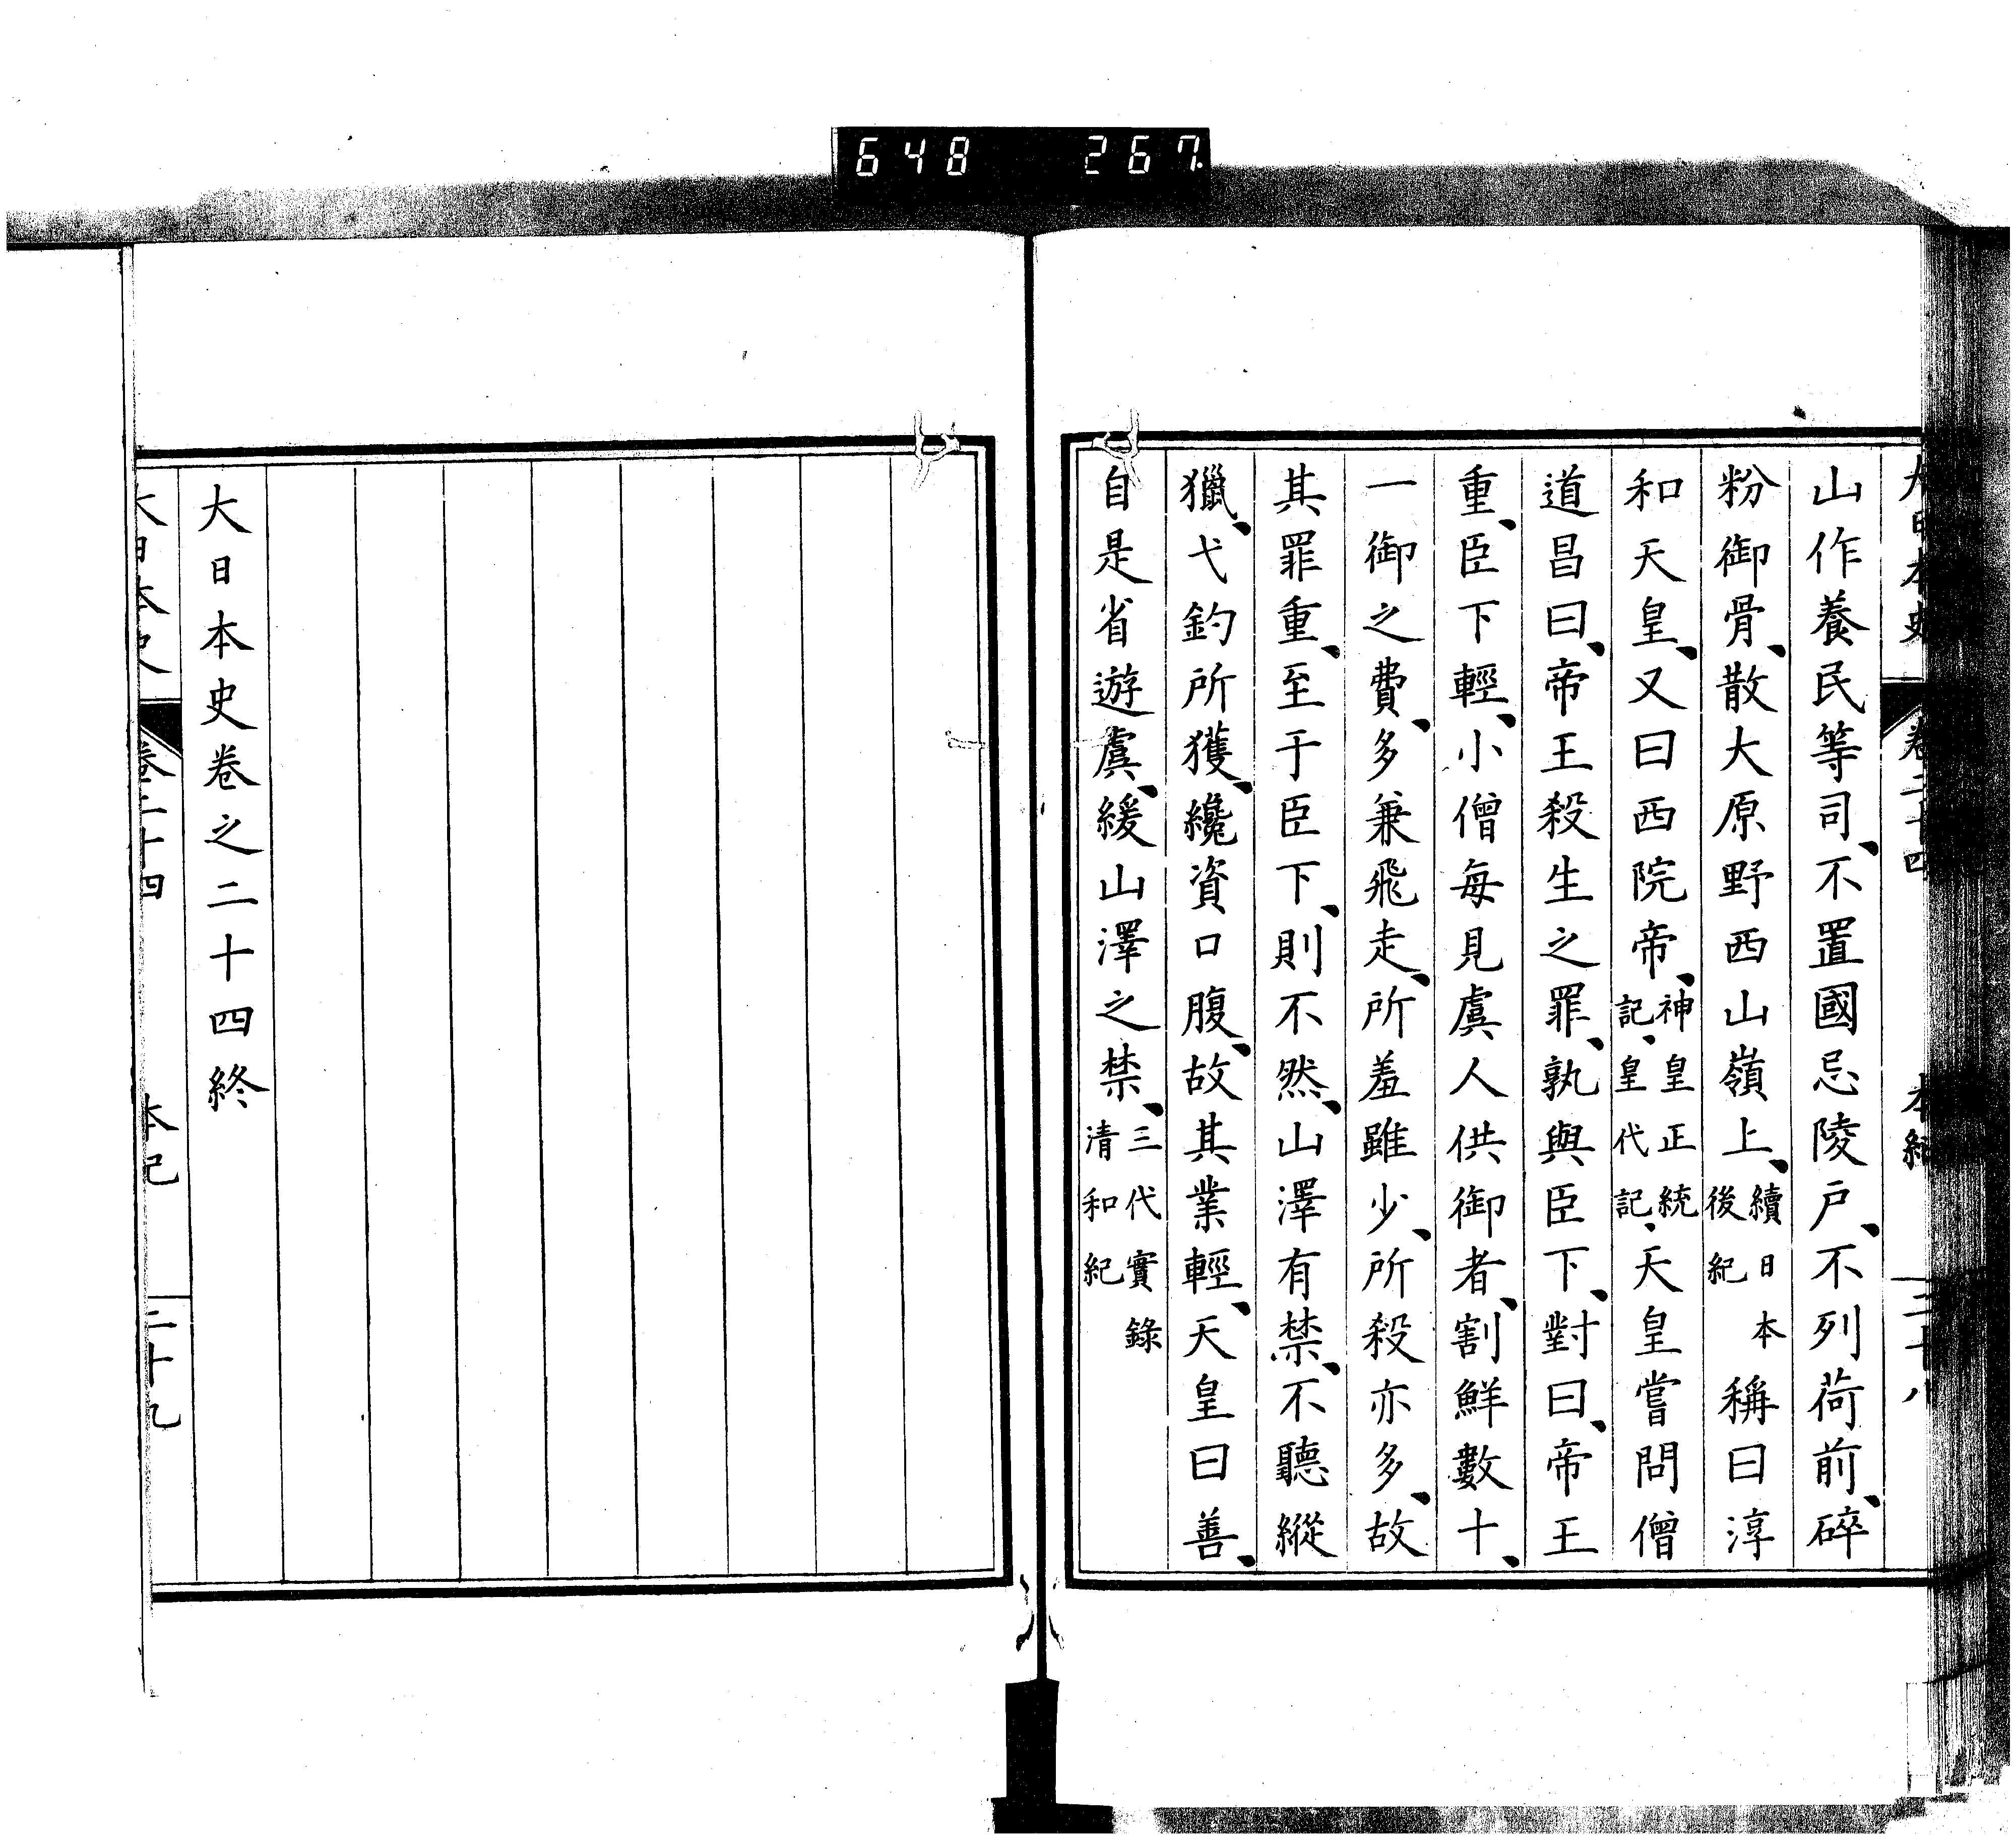 648 267
大日本史 卷二十四 本紀 二十八
山作養民等司、不置國忌陵戸、不列荷前、碎
粉御骨、散大原野西山嶺上、續日本後紀稱曰淳
和天皇、又曰西院帝、神皇正統記、皇代記、天皇嘗問僧
道昌曰、帝王殺生之罪、孰與臣下、對曰、帝王
重、臣下輕、小僧每見虞人供御者、割鮮數十、
一御之費、多兼飛走、所羞雖少、所殺亦多、故
其罪重、至于臣下、則不然、山澤有禁、不聽縱
獵、弋釣所獲、纔資口腹、故其業輕、天皇曰善、
自是省遊虞、緩山澤之禁、三代實錄清和紀
大日本史卷之二十四終
大日本史 卷二十四 本紀 二十九